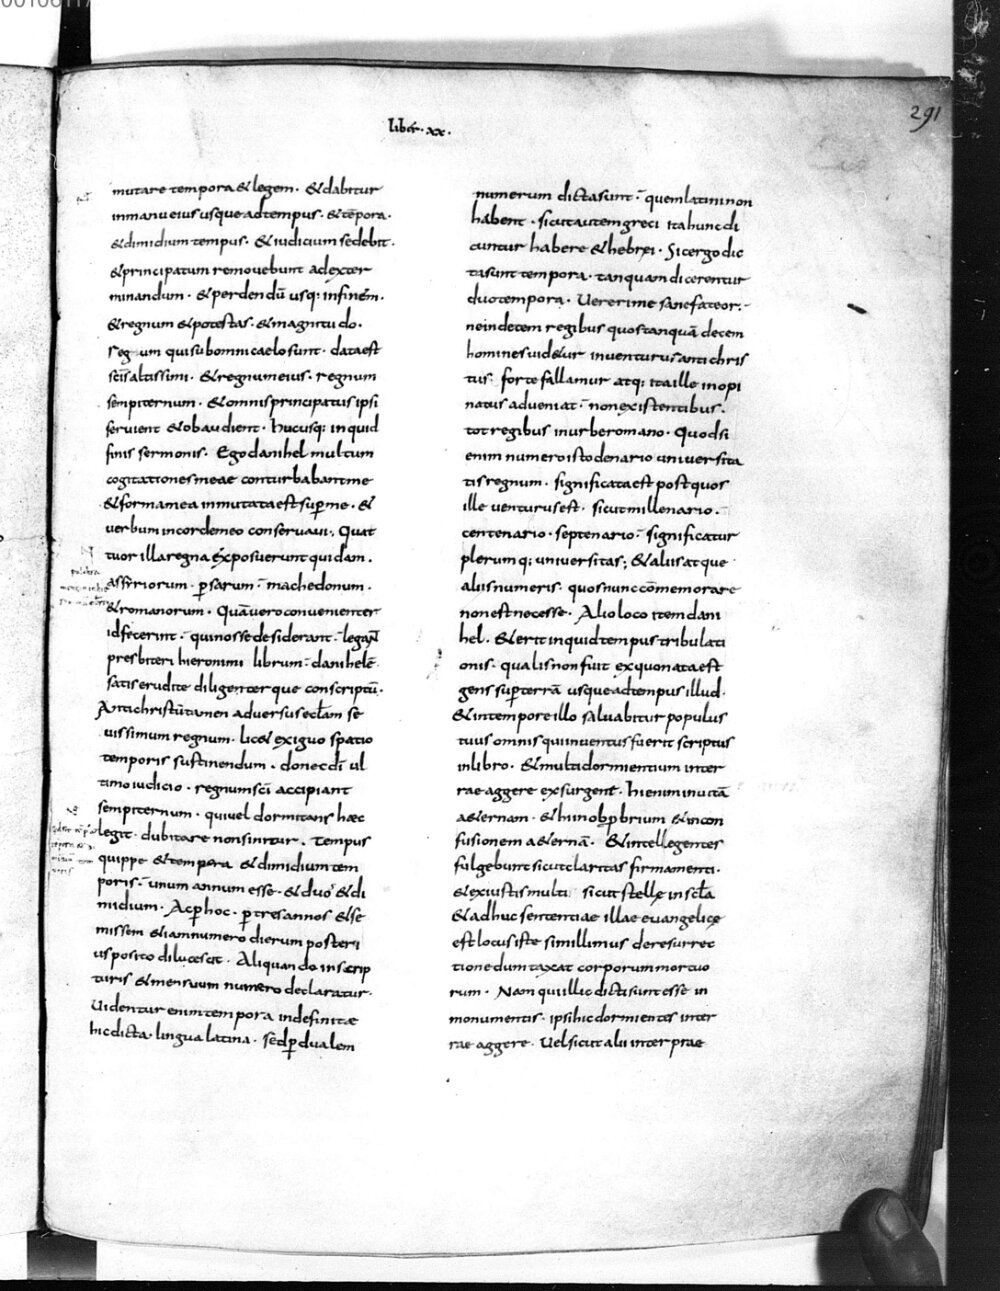 291
liber · xx ·
mutare tempora & legem · & dabitur
in manu eius usque ad tempus · & tēpora ·
& dimidium tempus · & iudicium sedebit ·
& principatum removebunt ad exter
minandum · & perdendū usq; in finēm ·
& regnum & potestas · & magnitudo ·
reg um qui sub omni caelo sunt · data est
scīs altissimi · & regnum eius · regnum
sempiternum · & omnis principatus ipsi
servient & obaudient · hucusq; inquid
finis sermonis · Ego danihel multum
cogitationes meae conturbabant me
& forma mea inmutata est sup me · &
verbum in corde meo conservavi · Quat
tuor illa regna exposuerunt quidam ·
assiriorum · psarum · machedonum ·
& romanorum · Quā vero convenienter
id fecerint · qui nosse desiderant · legant
presbiteri hieronimi librum · danihelē
satis erudite diligenterque conscriptū ·
Antichristū tamen adversus eclam se
vissimum regnum · lic& exiguo spatio
temporis sustinendum · donec dī ul
timo iudicio · regnum scī accipiant
sempiternum · qui vel dormitans haec
legit · dubitare non sinitur · Tempus
quippe & tempora & dimidium tem
poris · unum annum esse · & duo & di
midium · Ac p hoc · p tres annos & se
missem & iam numero dierum posteri
us posito dilucescit · Aliquando in scrip
turis & mensuum numero declaratur ·
Videntur enim tempora indefinitae
hic dicta · lingua latina · sed p dualem
numerum dicta sunt · quem latini non
habent · sicut autem greci ita hunc di
cuntur habere & hebrei · Sic ergo dic
ta sunt tempora · tanquam dicerentur
duo tempora · Vereri me sane fateor ·
ne in decem regibus quos tanquā decem
homines vid&ur inventurus antichris
tus · forte fallamur atq; ita ille inopi
natus adveniat · non existentibus ·
tot regibus in urbe romano · Quod si
enim numero isto denario universita
tis regnum · significata est post quos
ille venturus est · sicut millenario ·
centenario · septenario · significatur
plerumq; universitas ; & aliis atque
aliis numeris · quos nunc cōmemorare
non est necesse · Alio loco item dani
hel · & erit inquid tempus tribulati
onis · qualis non fuit ex quo nata est
gens sup terrā usque ad tempus illud ·
& in tempore illo salvabitur populus
tuus omnis qui inventus fuerit scriptus
in libro · & multi dormientium in ter
rae aggere exsurgent · hi enim in vitā
a&ernam · & hi in obpbrium & in con
fusionem a&ernā · & intellegentes
fulgebunt sicut claritas firmamenti ·
& ex iustis multi sicut stelle in scla
& adhuc sententiae illae evangelice
est locus iste simillimus de resurrec
tione dumtaxat corporum mortuo
rum · Nam qui illic dicti sunt esse in
monumentis · ipsi hic dormientes in ter
rae aggere · Vel sicut alii interprae